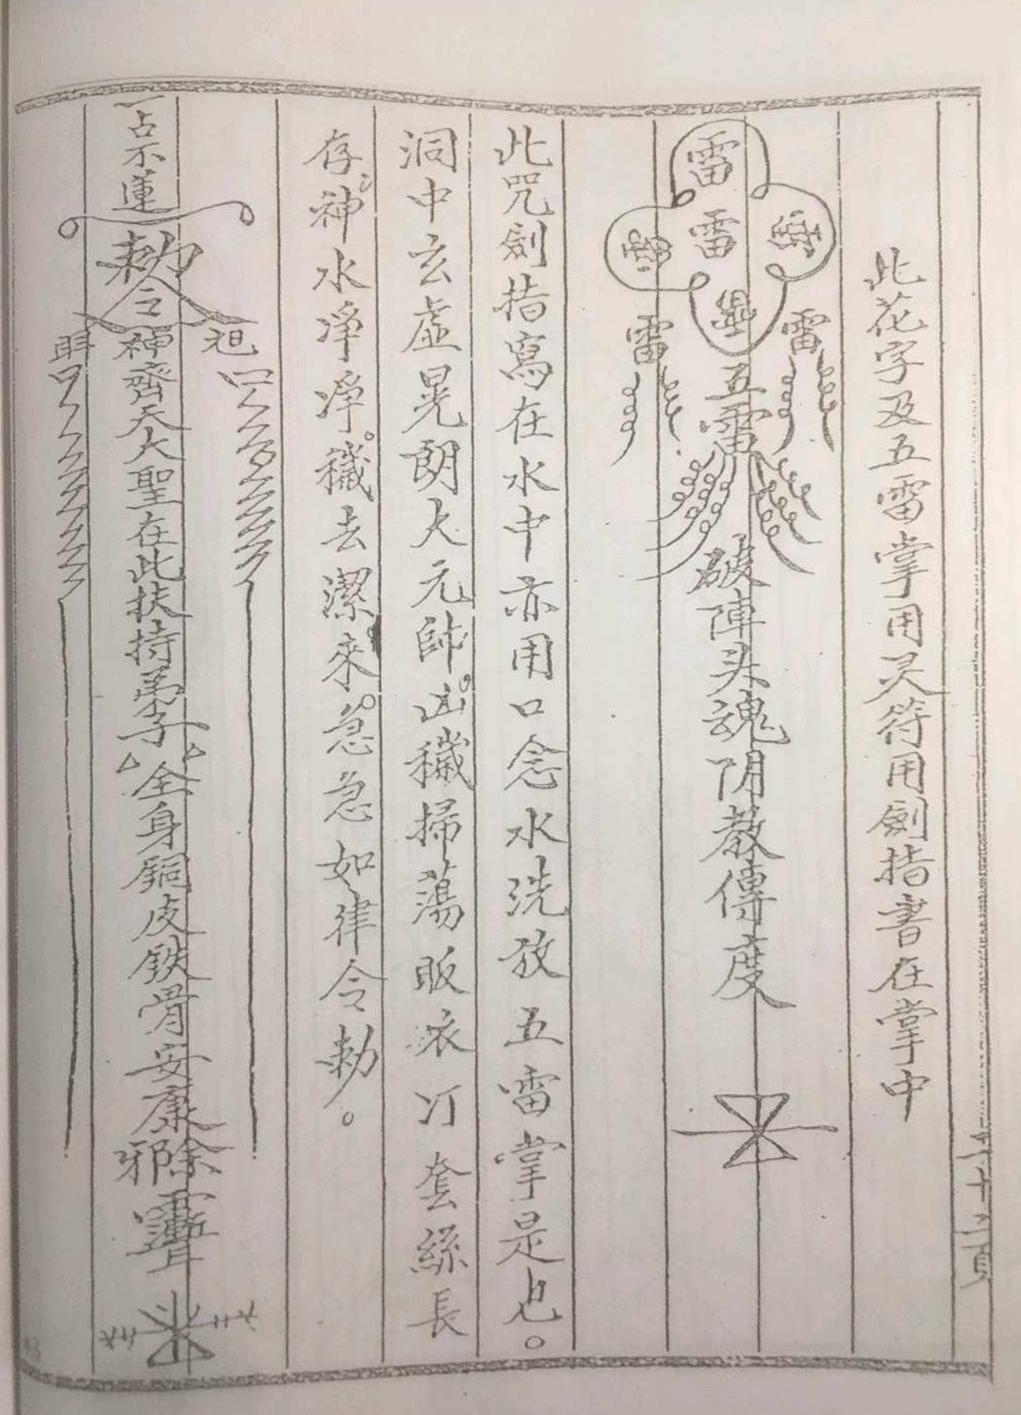 此花字及五雷掌用灵符用劍指書在掌中
雷
雷
雷
雷
五雷
破陣头魂阴教傳度
此咒劍指寫在水中亦用口念水洗放五雷掌是也。
洞中玄虛晃朗大元帥。凶穢掃蕩皈依冇套絲長
存。神水淨淨。穢去潔來。急急如律令勅。
一占不蓮
勅令
神齊天大聖在此扶持弟子全身銅皮鉄骨安康
除邪
二十二頁